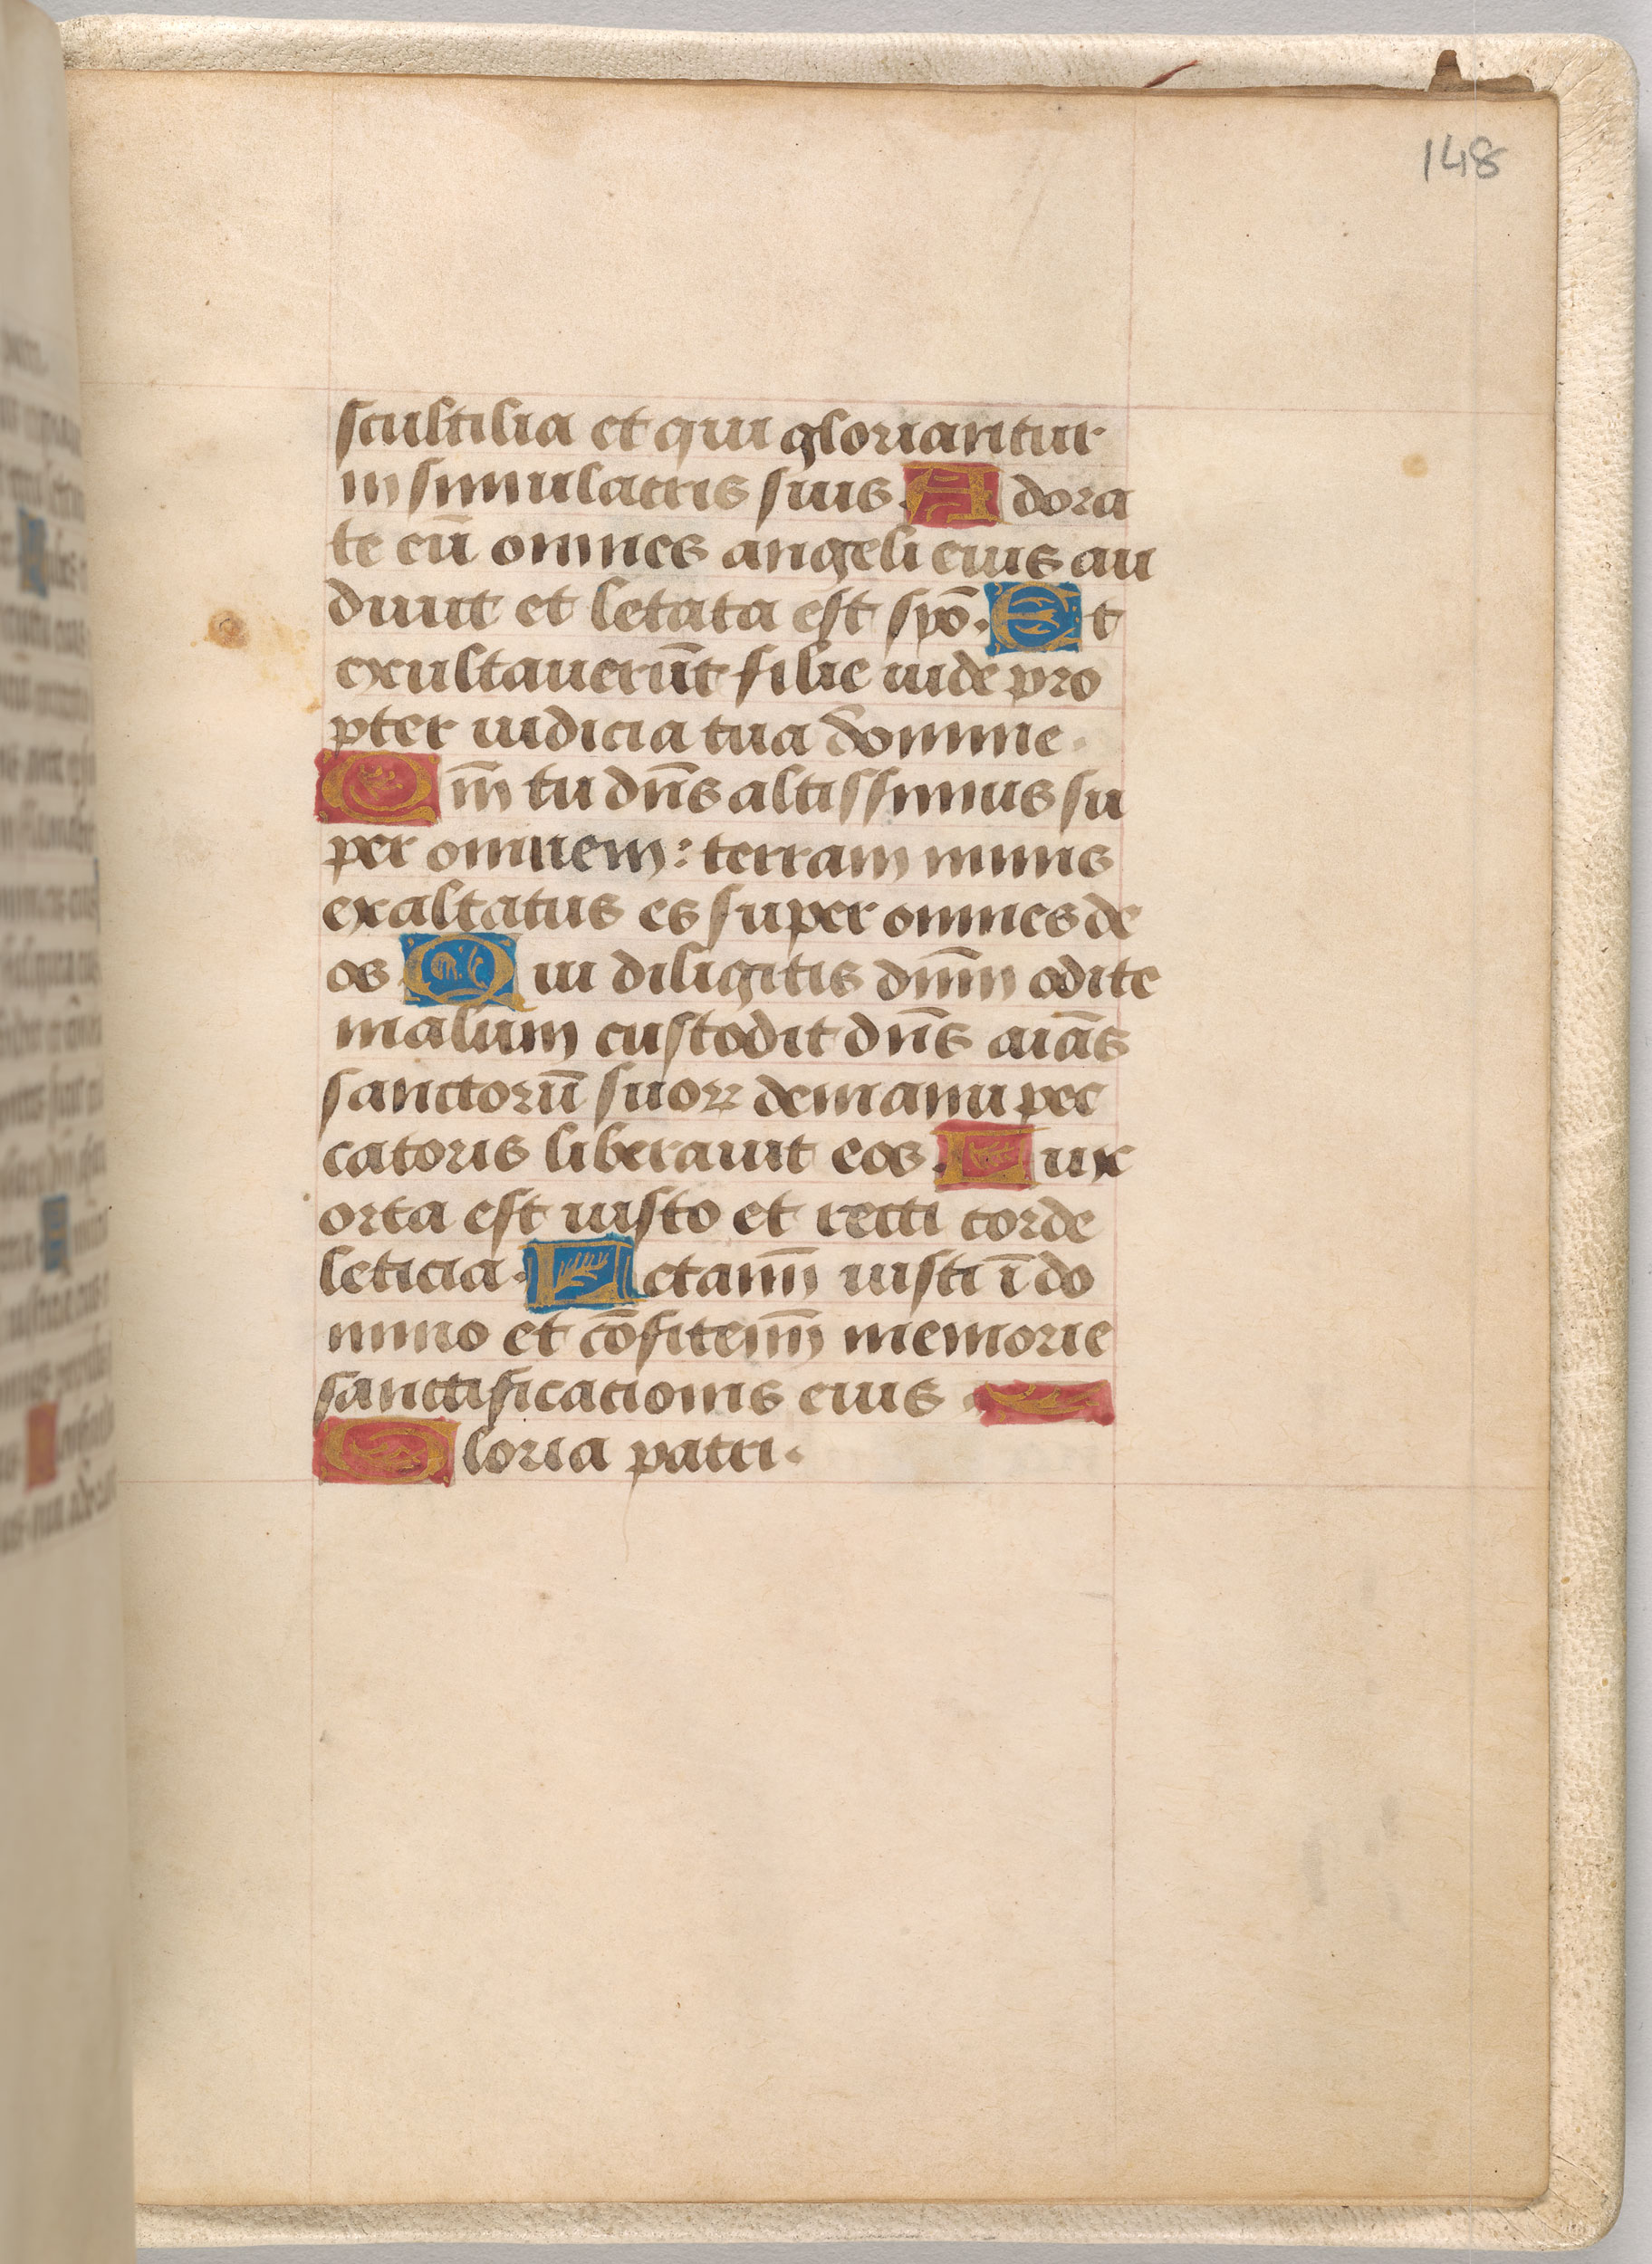 148
scultilia et qui gloriantur
in simulacris suis. Adora
te eū omnes angeli eius au
diuit et letata est spō. Et
exultauerūt filie iude pro
pter iudicia tua domine.
Qm̄ tu dn̄s altissimus su
per omnem: terram nimis
exaltatus es super omnes de
os Qui diligitis dn̄m odite
malum custodit dn̄s aiās
sanctorū suoꝝ de manu pec
catoris liberauit eos. Lux
orta est iusto et recti corde
leticia. Letamī iusti ī do
mino et cōfitemī memorie
sanctificationis eius
Gloria patri.